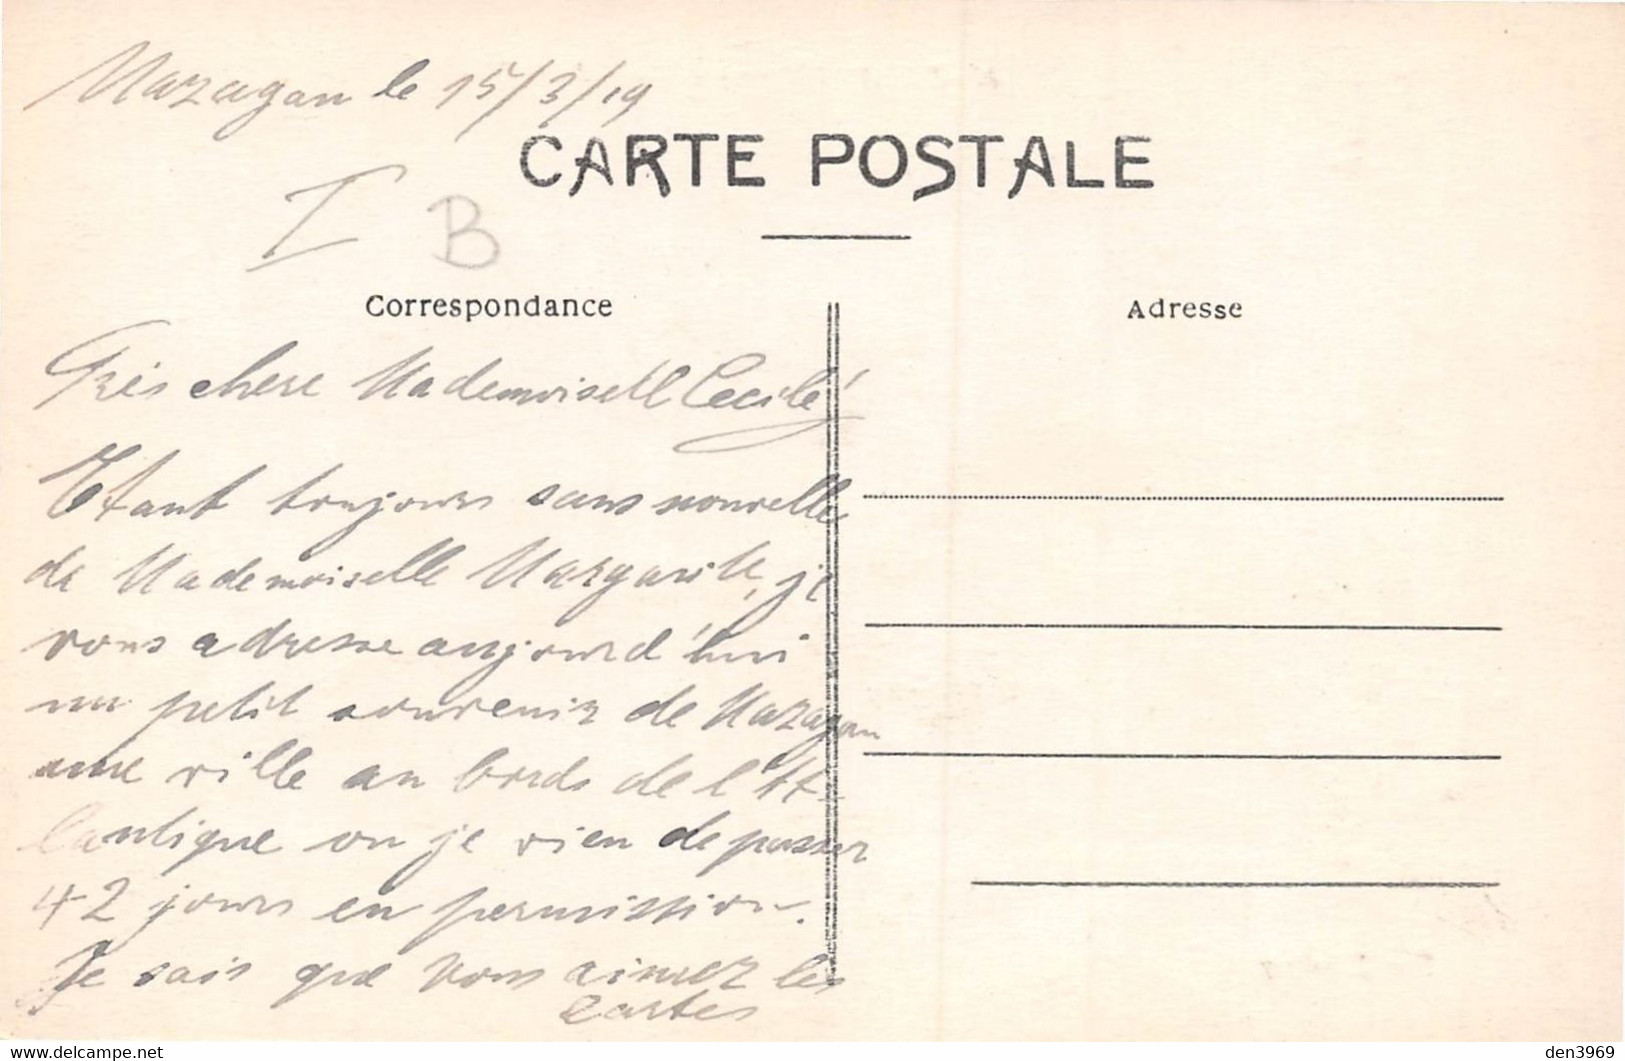 Mazagan le 15/3/19
CARTE POSTALE
I B
Correspondance
Adresse
Très chere Mademoisell Cecile!
Etant toujours sans nouvelle
de Mademoiselle Margarite, je
vous adresse aujourd'hui
un petit souvenir de Mazagan
une ville au bords de l'At-
lantique ou je vien de passer
42 jours en permission.
Je sais que vous aimez les
cartes
den3969